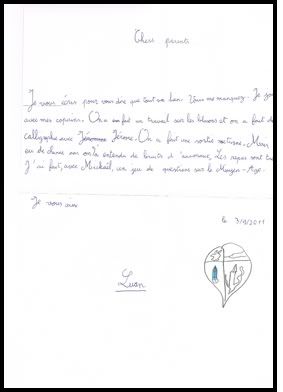 Chers parents
Je vous écris pour vous dire que tout va bien. Vous me manquez. Je
avec mes copains. On a fait un travail sur les blasons et on a fait de
calligraphie avec Jérôme. On a fait une sortie nocturne.
eu de chance car on a entendu de bruits d'animaux. Les repas sont
J'ai fait, avec Mickaïl, un jeu de questions sur le Moyen-Age.
Je vous
le 3/9/2011